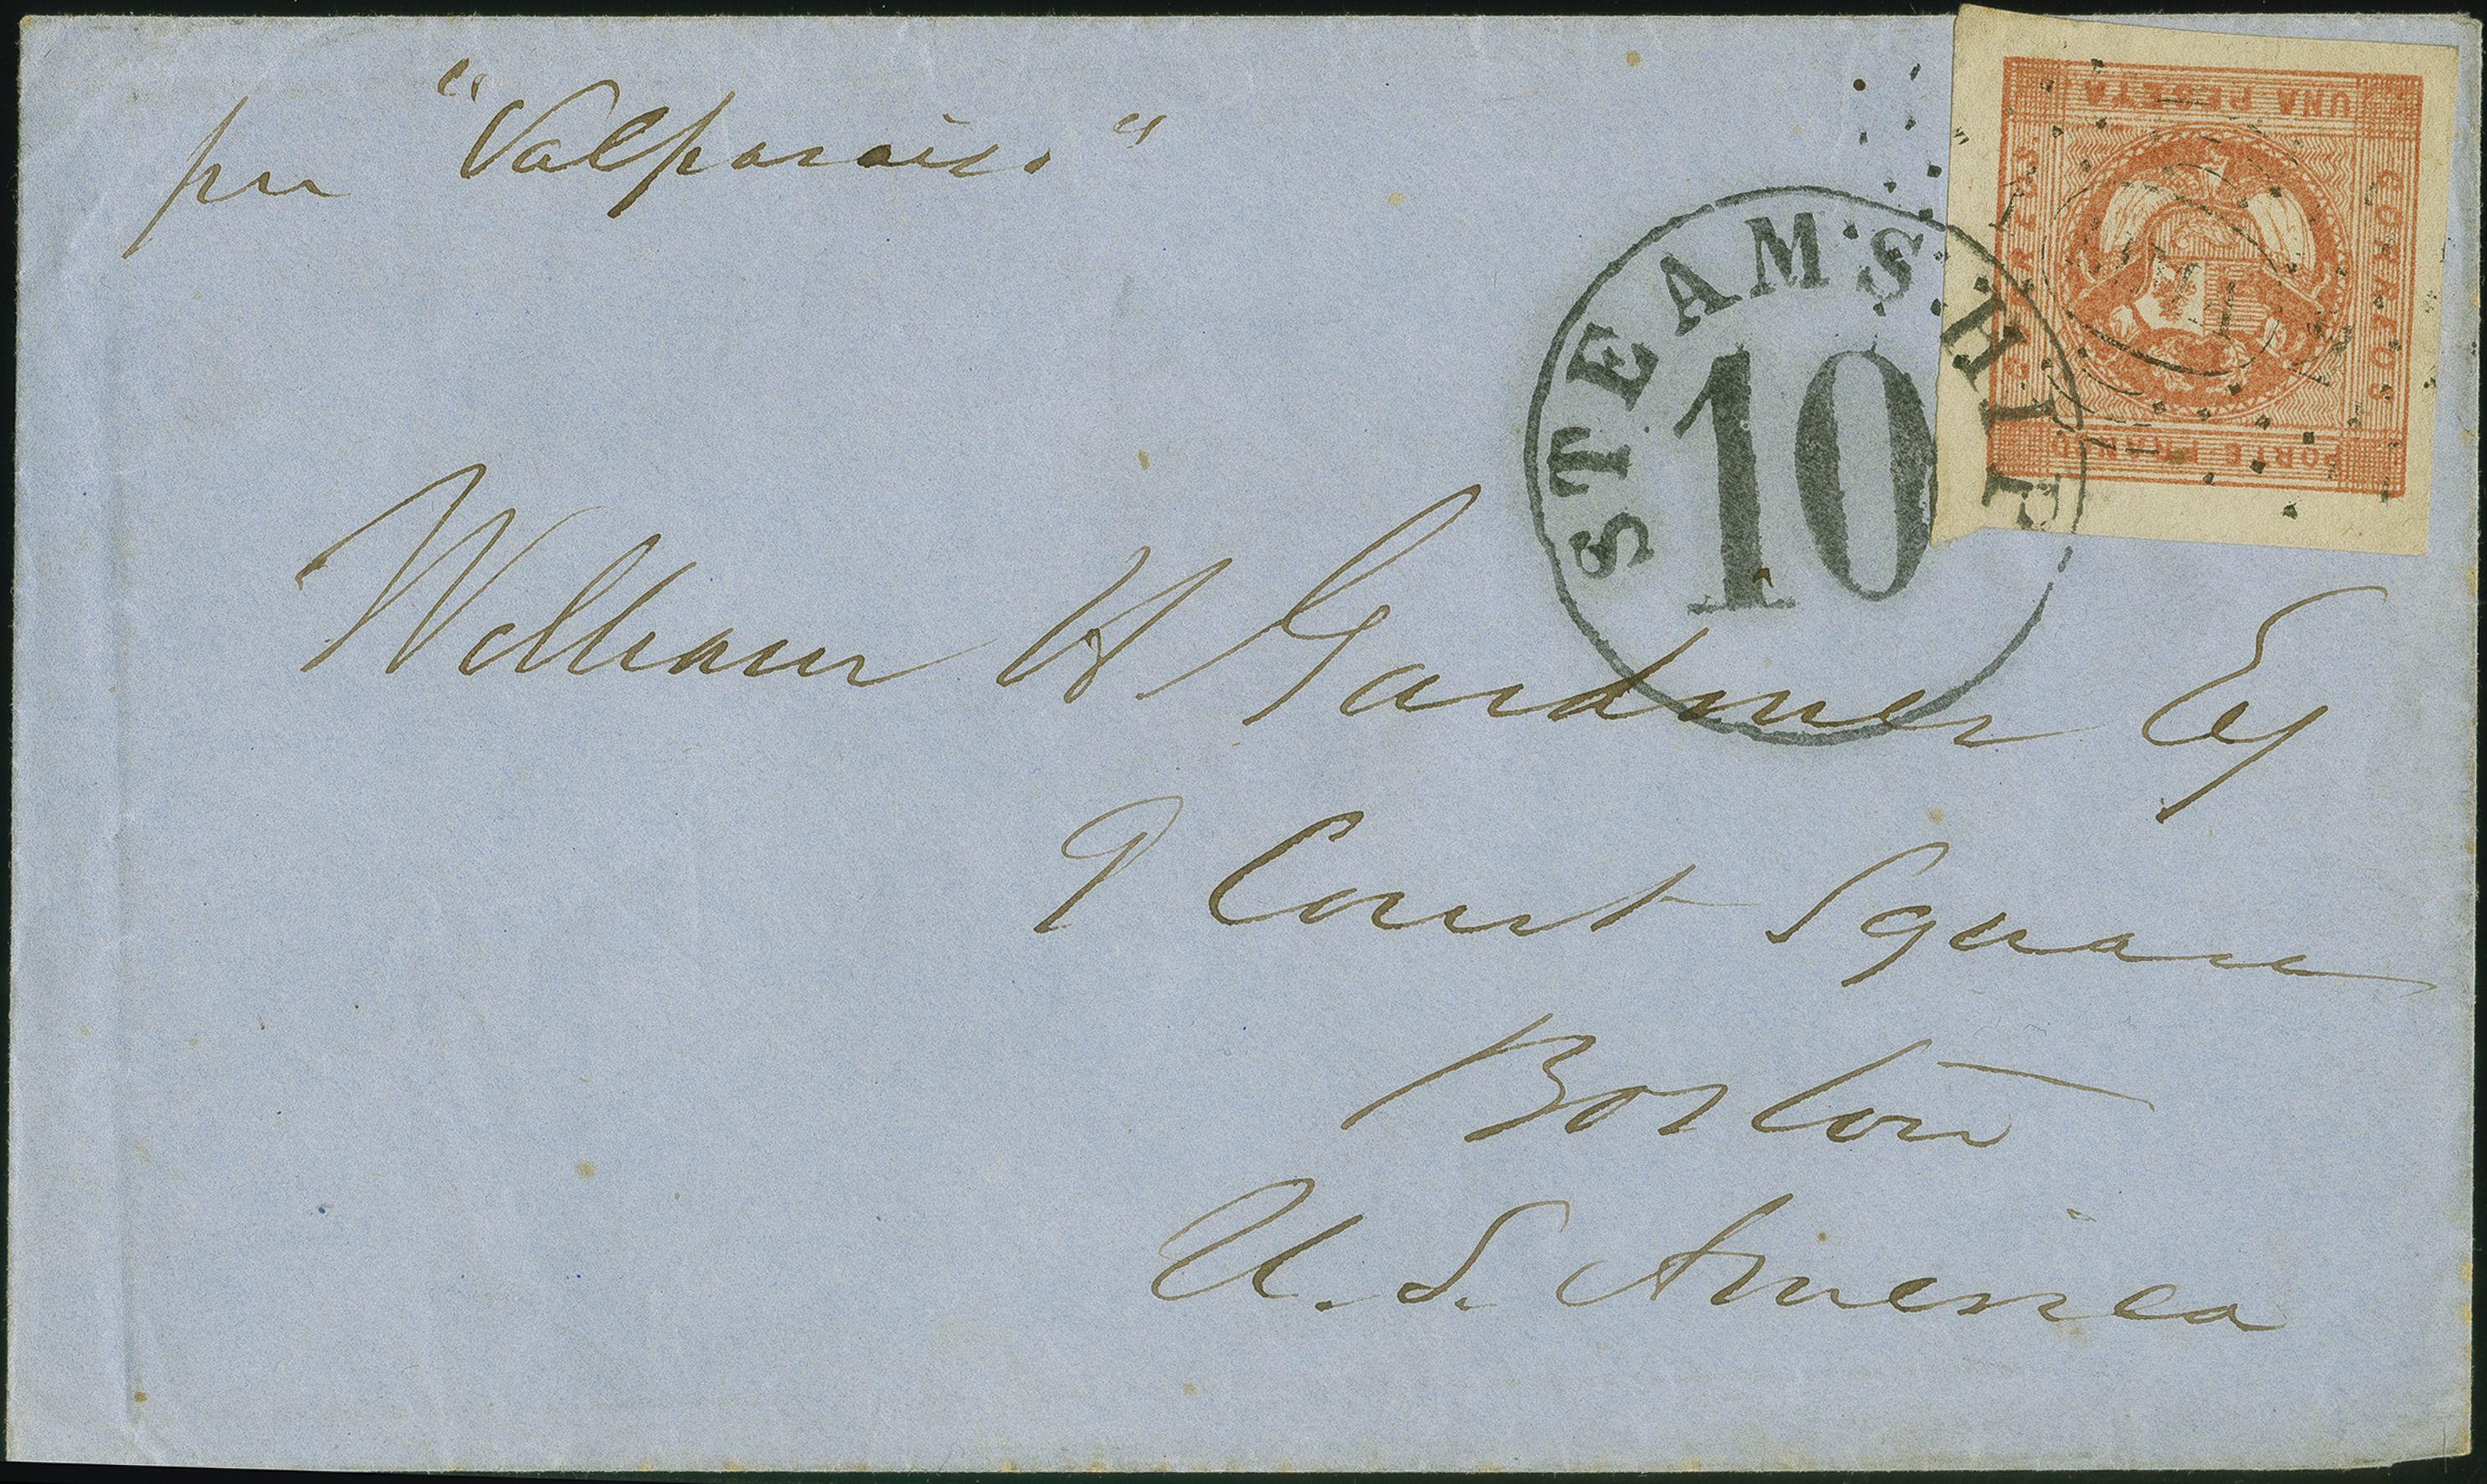 per "Valparaiso"
STEAMSHIP
10
UNA PESETA
CORREOS
CORREOS
PORTE FRANCO
LIMA
William H Gardiner Esq
9 Court Square
Boston
U. S. America